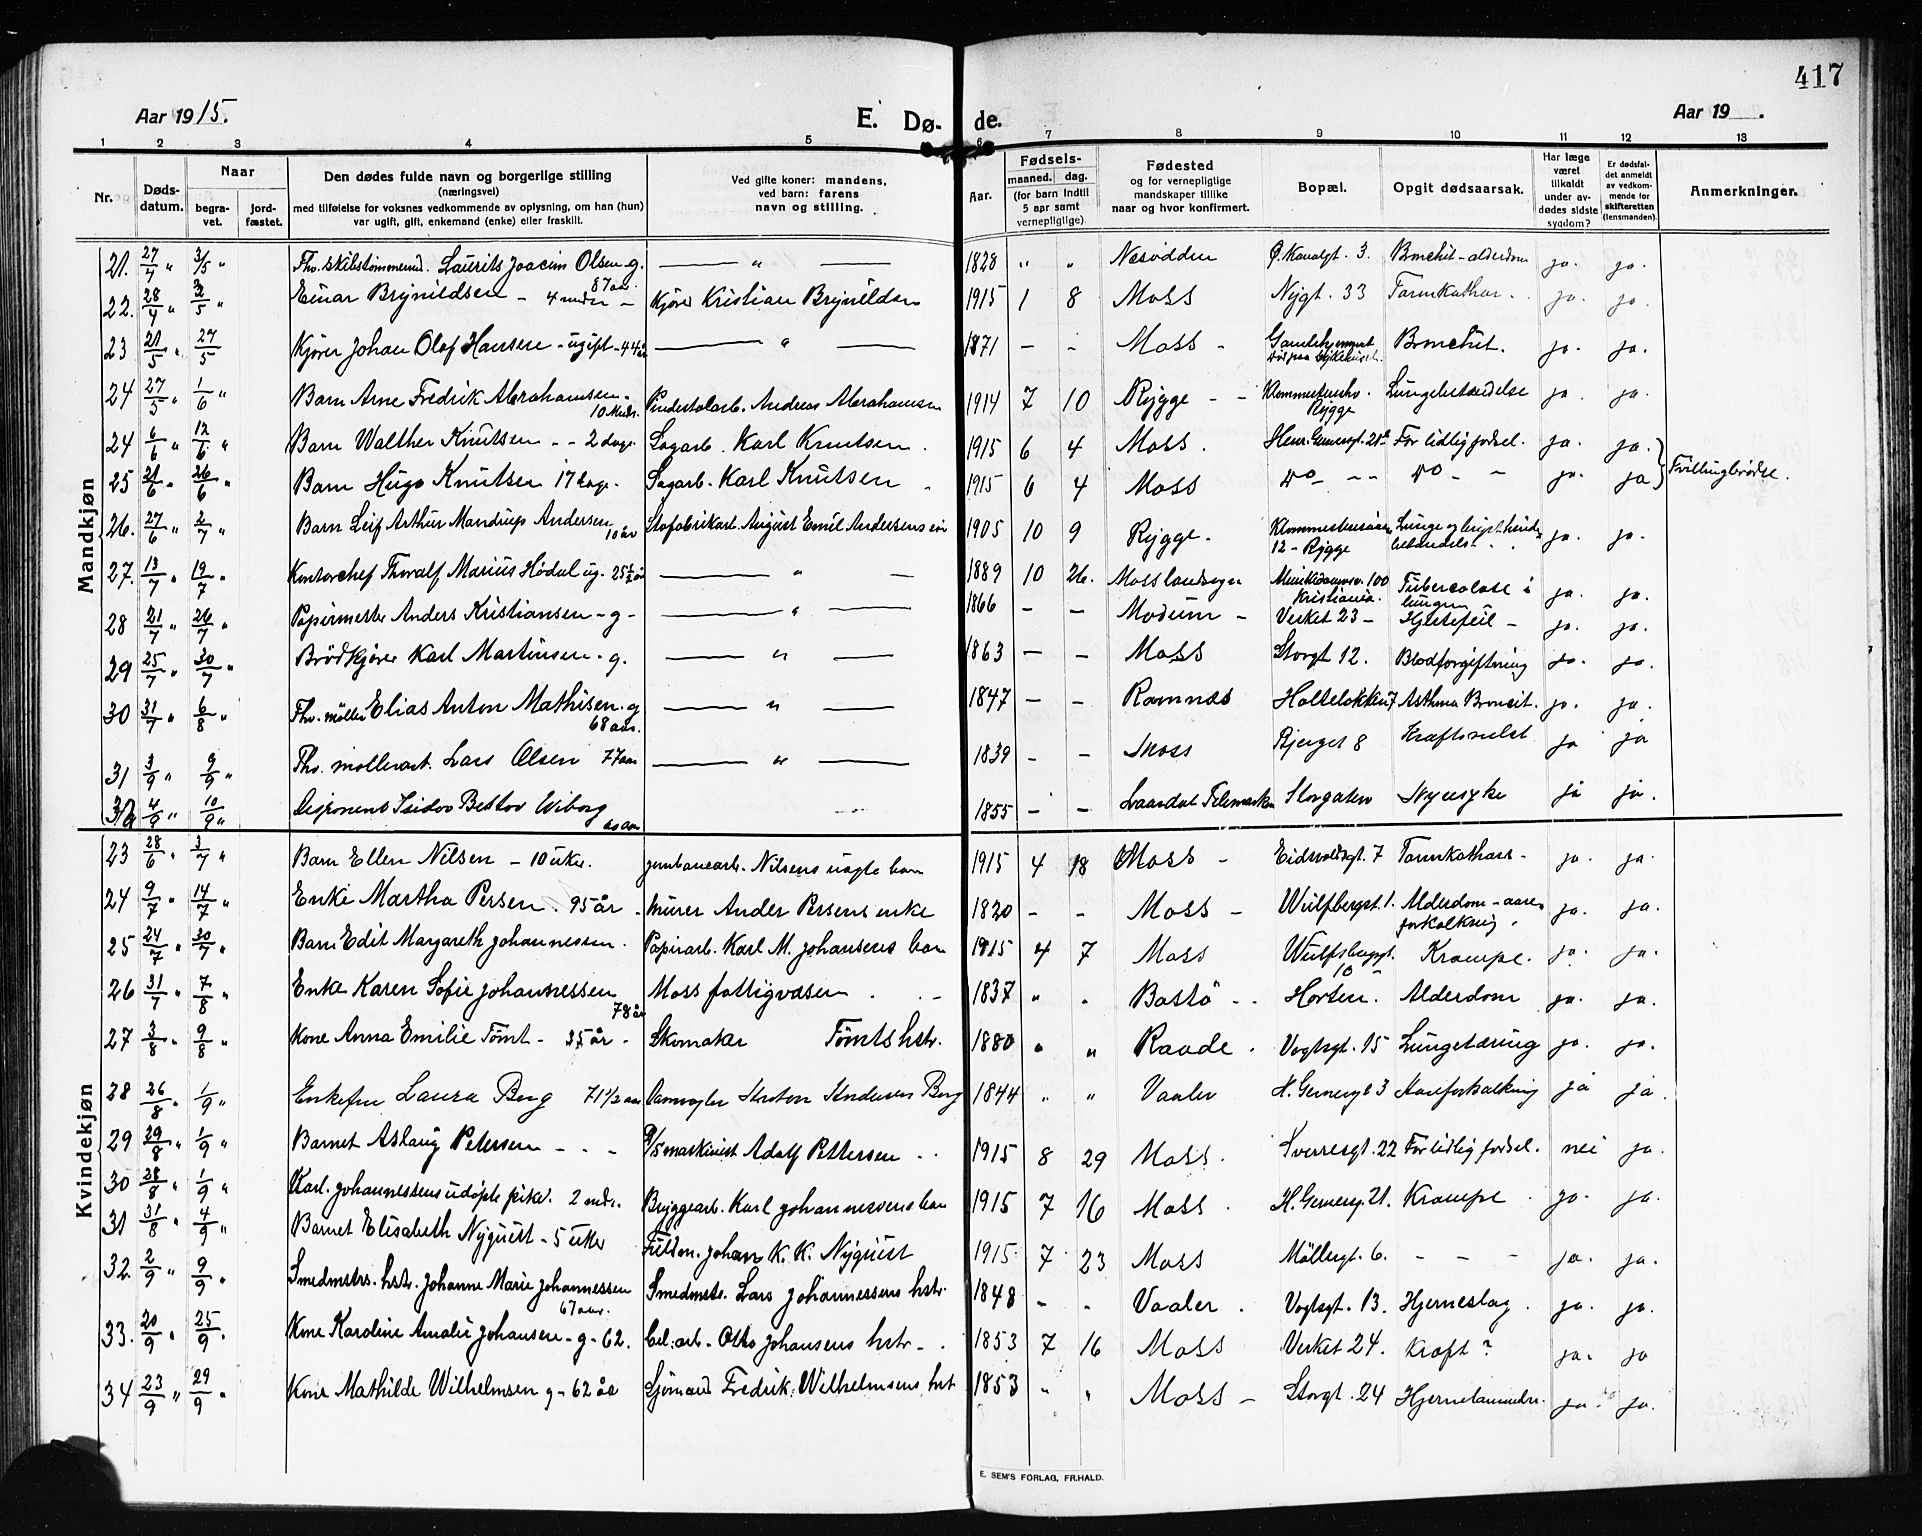 417
Aar 1915.
E. Dø-
de.
Aar 19 .
1 2 3 4 5 6 7 8 9 10 11 12 13
Nr.
Døds-
datum.
Naar
begra-
vet.
jord-
fæstet.
Den dødes fulde navn og borgerlige stilling
(næringsvei)
med tilføielse for voksnes vedkommende av oplysning, om han (hun)
var ugift, gift, enkemand (enke) eller fraskilt.
Ved gifte koner: mandens,
ved barn: farens
navn og stilling.
Aar.
Fødsels-
maaned. dag.
(for barn indtil
5 aar samt
vernepligtige).
Fødested
og for vernepligtige
mandskaper tillike
naar og hvor konfirmert.
Bopæl.
Opgit dødsaarsak.
Har læge
været
tilkaldt
under av-
dødes sidste
sygdom?
Er dødsfal-
det anmeldt
av vedkom-
mende for
skifteretten
(lensmanden).
Anmerkninger.
Mandkjøn
21. 27/4 " 3/5 " Fhv. skibstømmermd. Laurits Joacim Olsen g. 87 aar. — " — 1828 " " Nesodden Ø. Kanalgt. 3. Bronchit - alderdom ja. ja.
22. 28/4 " 3/5 " Einar Brynildsen - 4 mdr - Kjører Kristian Brynildsen 1915 1 8 Moss Nygt. 33 Tarmkathar. ja. ja.
23 21/5 " 27/5 Kjører Johan Olaf Hansen - ugift - 44 år — " — 1871 - - Moss - Bronchit. ja. ja.
24 27/5 " 1/6 " Barn Arne Fredrik Abrahamsen. 10 mdr. Andreas Abrahamsen 1914 7 10 Rygge - - Rygge Lungebetændelse ja. ja.
24 6/6 " 12/6 " Barn Walther Knutsen - - 2 dage Sagarb. Karl Knutsen. 1915 6 4 Moss. Henr. Gernersgt. 21 For tidlig fødsel. ja. ja.
25 21/6 " 26/6 " Barn Hugo Knutsen 17 dage. Sagarb. Karl Knutsen - 1915 6 4 Moss do - - do - - ja. ja Tvillingbrødre.
26. 27/6 " 2/7 " Barn Leif Arthur Mandrup Andersen 10 år August Emil Andersens søn 1905 10 9 Rygge. 12 - Rygge ja. ja.
27. 13/7 " 19/7 " Kontorchef Thoralf Marius Hödal ug. 25 1/2 år — " — 1889 10 26. Moss landsogn 100 Kristiania. Tuberculose i lungen ja. ja.
28 21/7 " 26/7 " Papirmester Anders Kristiansen - g - — " — 1866 - - Modum - Verket 23 - Hjertefeil - ja. ja.
29 25/7 " 30/7 " Brödkjører Karl Martinsen - g. — " — 1863 - - Moss Storgt 12. Blodforgiftning ja. ja.
30 31/7 " 6/8 " Fhv. møller Elias Anton Mathisen. g 68 aar. — " — 1847 - - Ramnæs Holteløkken 7 Asthma Broncit. ja. ja.
31 3/9 " 9/9 " Fhv. møllerarb. Lars Olsen 77 aar — " — 1839 - - Moss Bjerget 8 Kræftsvulst ja ja
32 4/9 " 10/9 " Disponent Isidor Wiborg 60 aar 1855 - - Laardal Telemarken Storgaten Nyresyke ja ja.
Kvindekjøn
23 28/6 " 3/7 " Barn Ellen Nilsen - 10 uker. Jernbanearb. Nilsens uægte barn 1915 4 18 Moss - Eidsvoldsgt. 7 Tarmkathar - ja. ja.
24 9/7 " 14/7 " Enke Martha Persen. 95 år - Murer Anders Persens enke 1820 - - Moss - Wulfbergst. 1. Alderdom - aare- forkalkning. ja. ja.
25 24/7 " 30/7 " Barn Edit Margareth Johannessen. Papirarb. Karl M. Johansens barn 1915 4 7 Moss Wulfsbergsgt. 10 - Krampe. ja. ja.
26 31/7 " 7/8 " Enke Karen Sofie Johannessen 78 år Moss fattigvæsen. - 1837 " " Bastö - - Horten. Alderdom ja. ja.
27 3/8 " 9/8 " Kone Anna Emilie Tömt - 35 år - Skomaker Tömts hstr. 1880 " " Raade. Vogtsgt. 15 Lungetæring ja. ja.
28 26/8 " 1/9 " Enkefru Laura Berg 71 1/2 aar Andersen Berg 1844 " " Vaaler H. Gernersgt 3 Aareforkalkning ja ja.
29 29/8 " 1/9 " Barnet Aslaug Petersen - - - maskinist Adolf Pettersen - - 1915 8 29 Moss. Sverresgt. 22 For tidlig fødsel. nei ja.
30 28/8 " 1/9 " Karl. Johannessens udøpte pike. 2 mdr. Bryggearb. Karl Johannessens barn 1915 7 16 Moss. H. Gernersg. 21. Krampe. ja. ja.
31 31/8 " 4/9 " Barnet Elisabeth Nyquist - 5 uker Johan K. K. Nyquist 1915. 7. 23 Moss Möllergt. 6. - - - ja. ja.
32 2/9 " 9/9 " Smedmstrs. hstr. Johanne Marie Johannessen 67 aar. Smedmstr. Lars Johannessens hstr. 1848 - " Vaaler. Vogtsgt. 13. Hjerneslag. ja. ja.
33. 20/9 " 25/9 " Kone Karoline Amalie Johansen - g - 62. Cel. arb. Otto Johansens hstr. - . 1853 7 16 Moss Verket 24. Kræft? ja. ja
34 23/9 " 29/9 " Kone Mathilde Wilhelmsen g - 62 år Sjömand Fredrik Wilhelmsens hst 1853 " " Moss - Storgt. 24 ja. ja.
E. SEM'S FORLAG, FR.HALD.